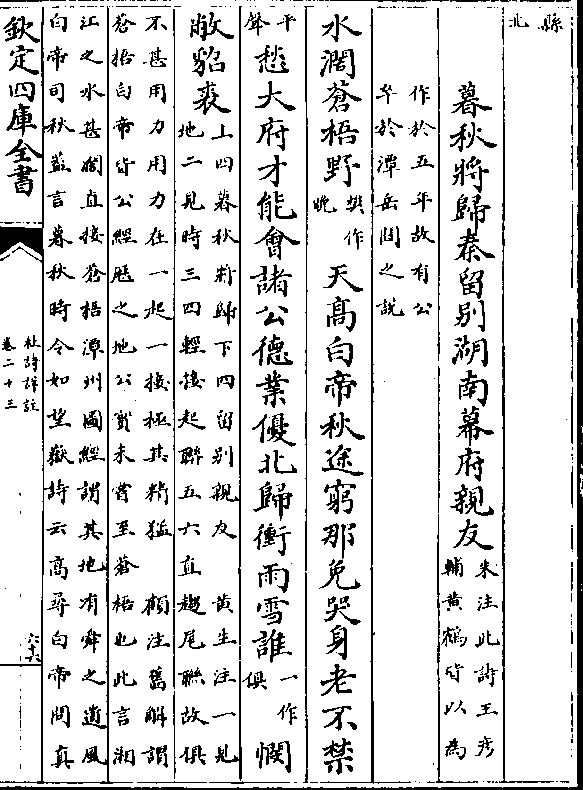 縣
北
暮秋將歸秦留别湖南幕府親友
朱注此詩王彦
輔黄鶴皆以為
作於五年故有公
卒於潭岳間之說
水闊蒼梧野
樊作
晚
天高白帝秋途窮那免哭身老不禁
平
聲
愁大府才能會諸公德業優北歸衝雨雪誰
一作
俱
憫
敝貂裘
上四暮秋將歸下四留别親友 黄生注一見
地二見時三四輕接起聯五六直趨尾聯故俱
不甚用力用力在一起一接極其精猛 顧注舊解謂
蒼梧白帝皆公經歴之地公實未嘗至蒼梧也此言湘
江之水甚闊直接蒼梧潭州圖經謂其地有舜之遺風
白帝司秋葢言暮秋時令如望嶽詩云高尋白帝問真
欽定四庫全書
杜詩詳註
卷二十三
六十六